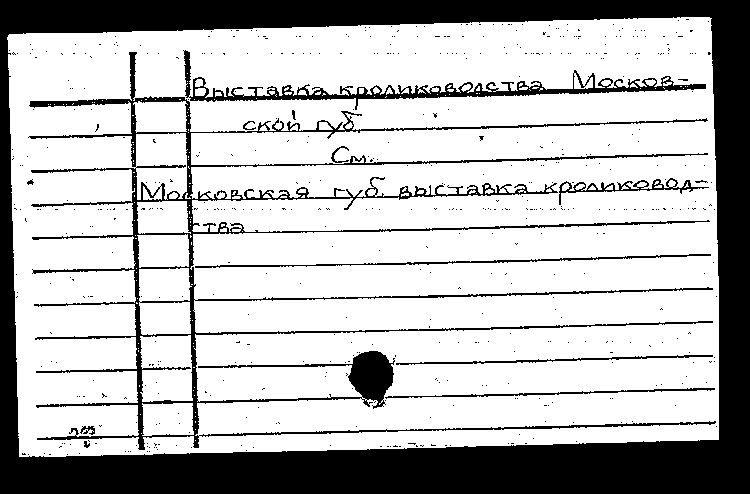 Выставка кролиководства Москов-
ской губ.
См.
Московская губ. выставка кроликовод-
ства.